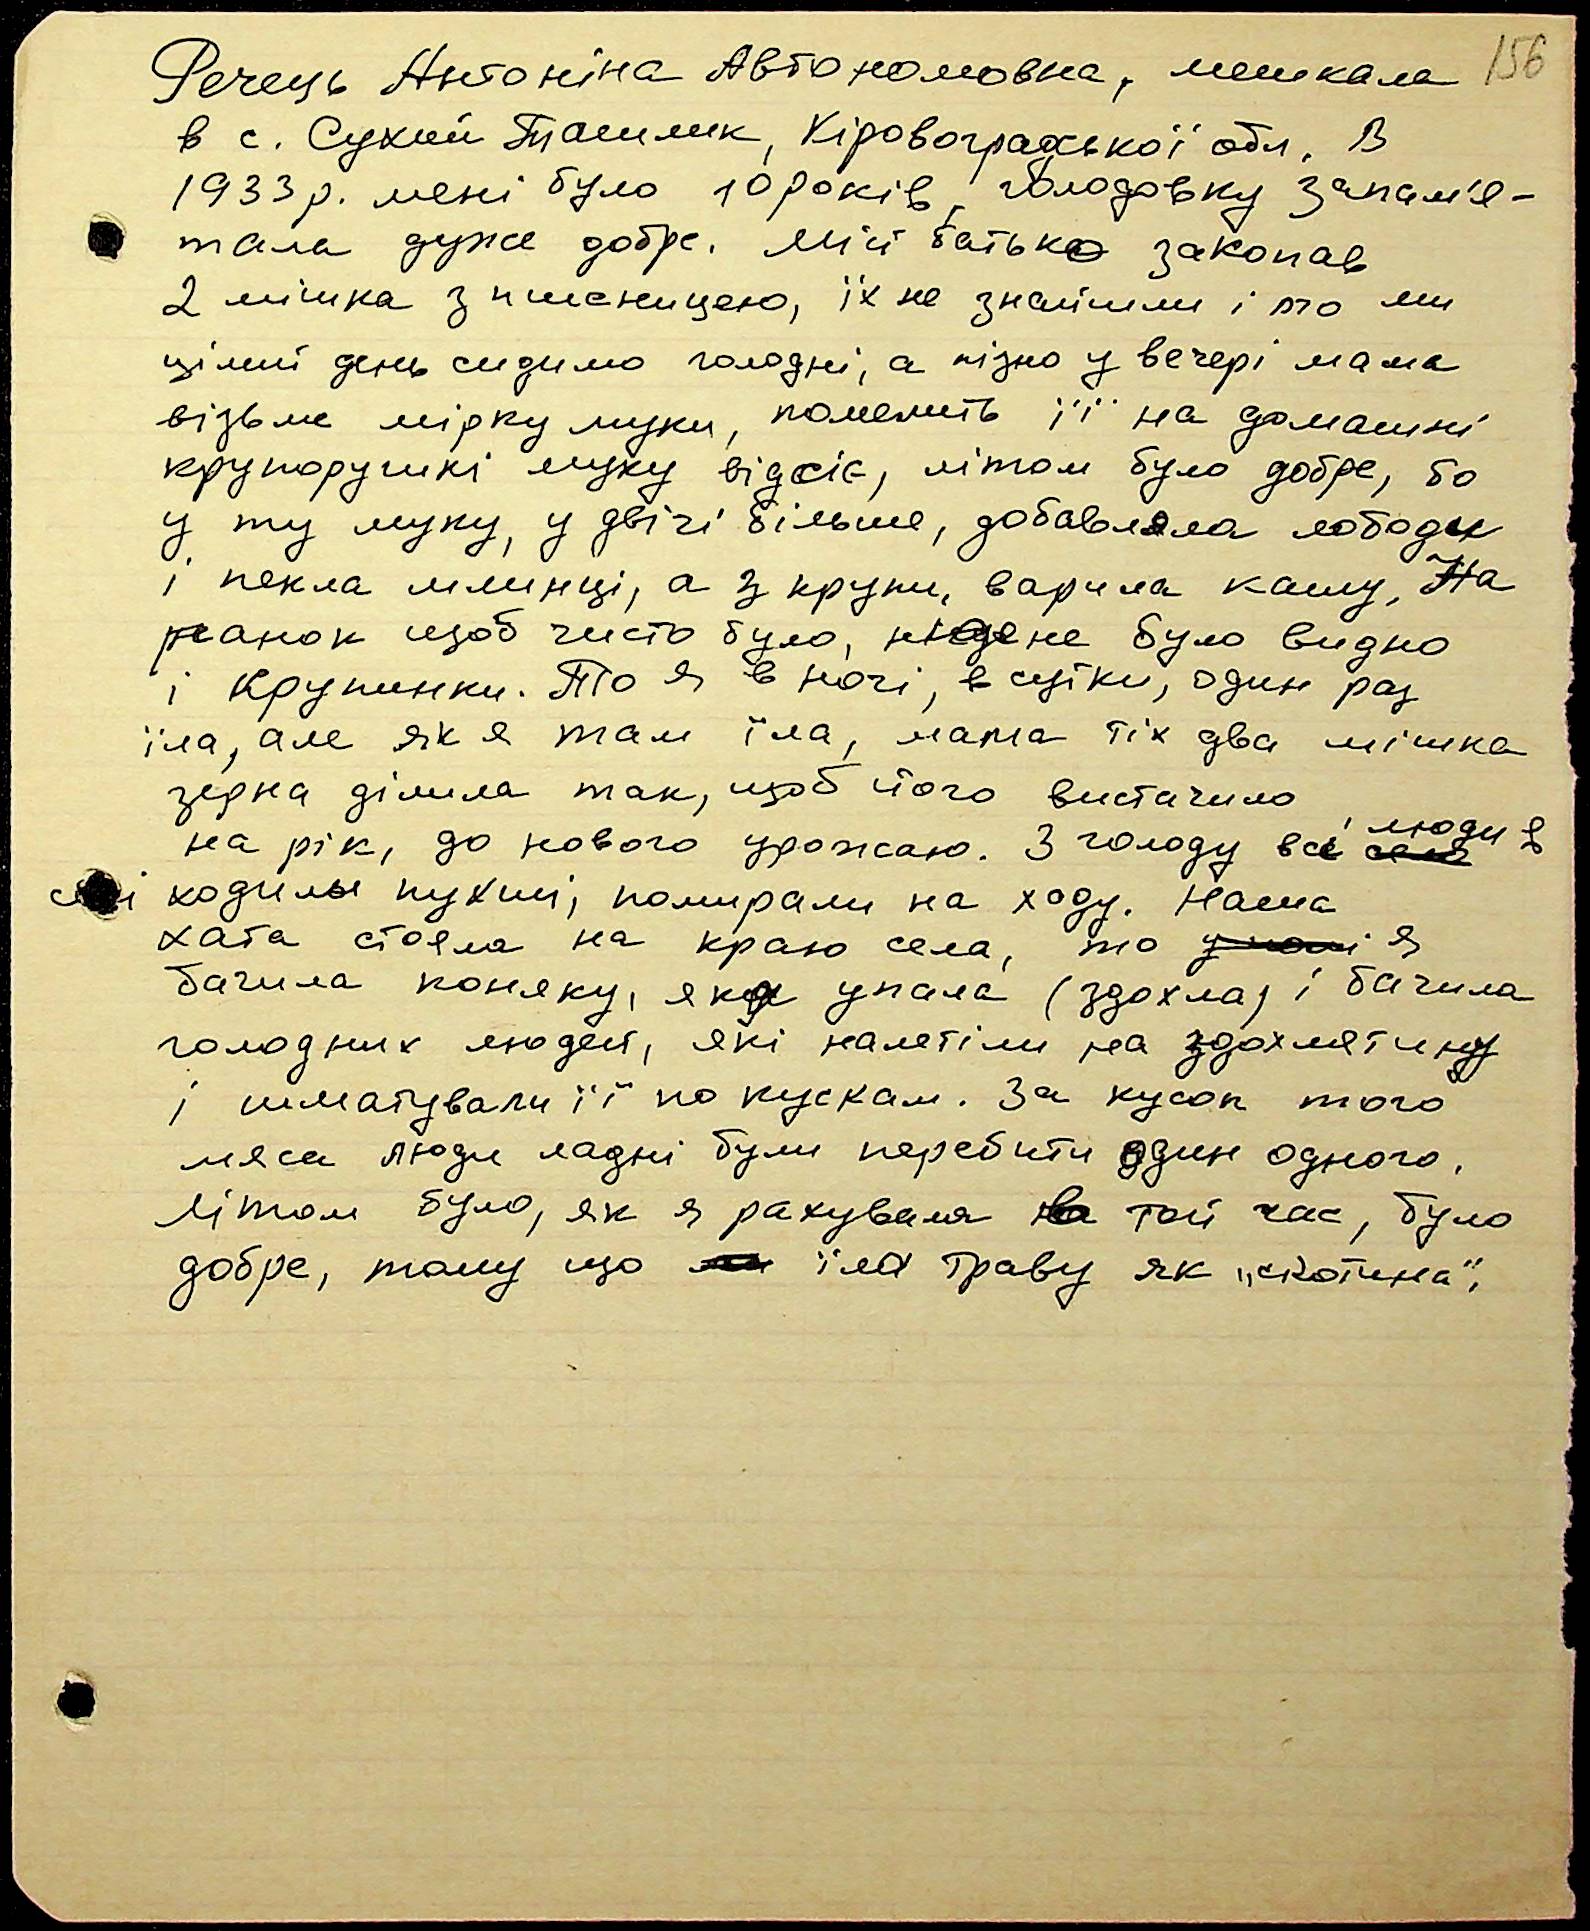 156
Речець Антоніна Автономовна, мешкала
в с. Сухий Ташлик, Кіровоградської обл. В
1933 р. мені було 10 років, голодовку запам'я-
тала дуже добре. Мій батько закопав
2 мішка з пшеницею, їх не знайшли і ото ми
цілий день сидимо голодні, а пізно у вечері мама
візьме мірку муки, помелить її на домашні
крупорушкі муку відсіє, літом було добре, бо
у ту муку, у двічі більше, добавляла лободи
і пекла млинці, а з крупи, варила кашу. На
ранок щоб чисто було, ніде не було видно
і крупинки. То я в ночі, в сутки, один раз
їла, але як я там їла, мама тіх два мішка
зерна ділила так, щоб його вистачило
на рік, до нового урожаю. З голоду всі люди в
селі ходили пухлі, помирали на ходу. Наша
хата стояла на краю села, то я
бачила коняку, яка упала (здохла) і бачила
голодних людей, які налетіли на здохлятину
і шматували її по кускам. За кусок того
мяса люди ладні були перебити один одного.
Літом було, як я рахувала на той час, було
добре, тому що їла траву як „скотина".